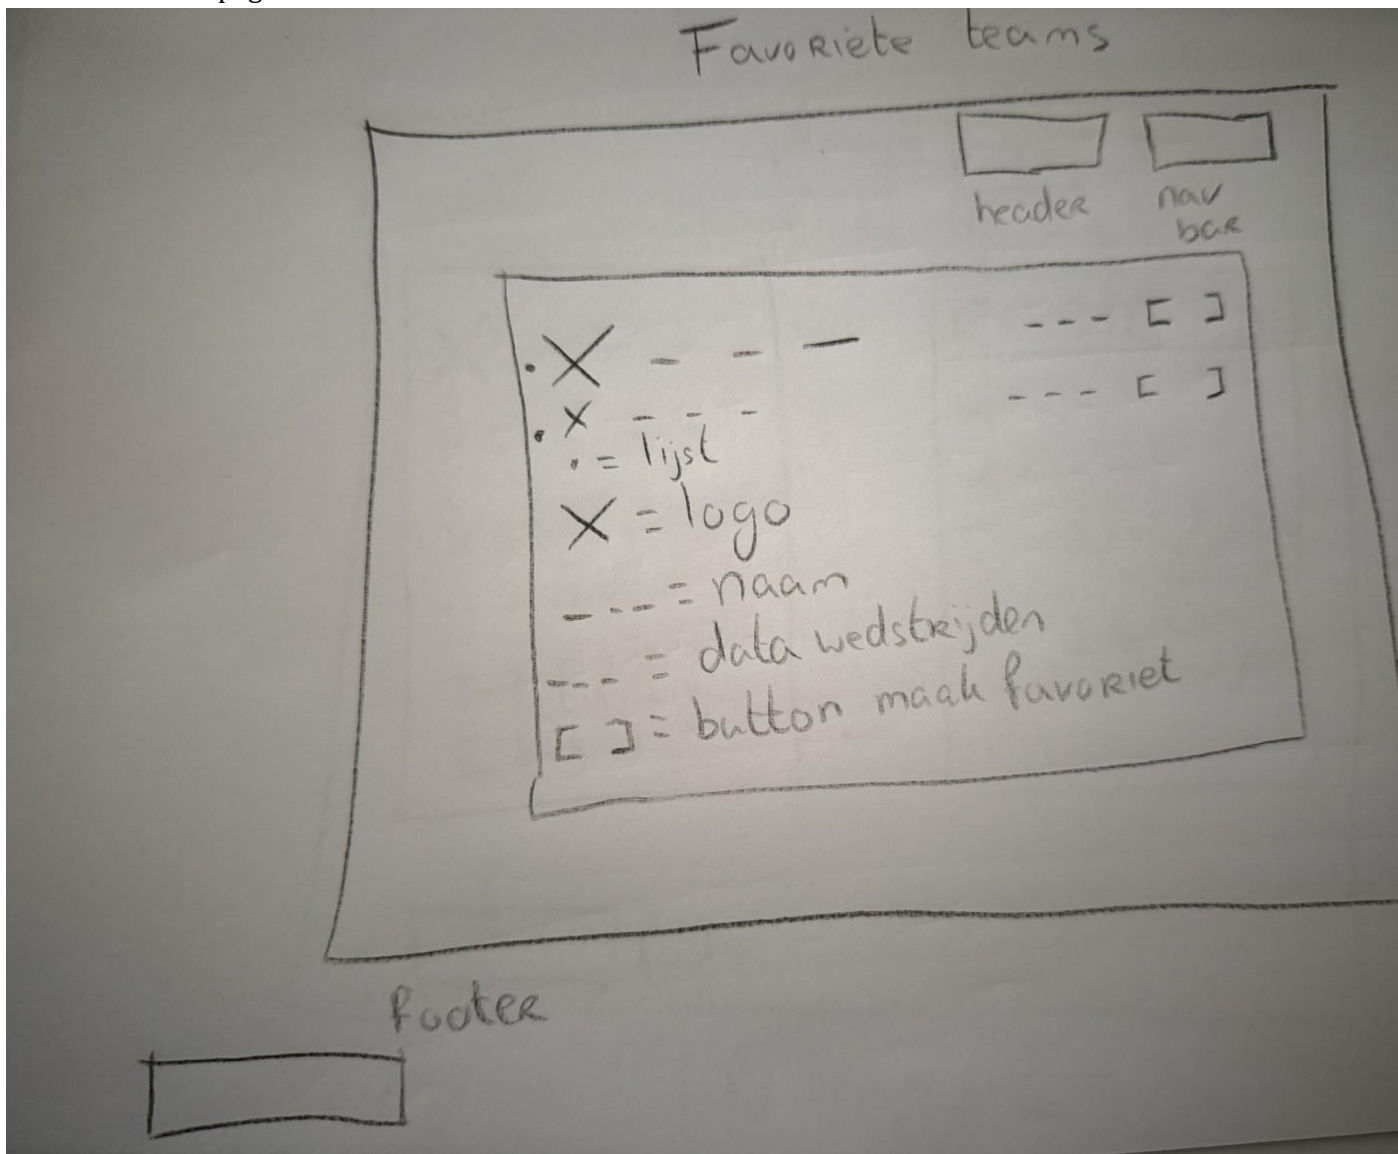 Favoriete teams
header
nav
bar
. X - - — --- [ ]
. X - - - --- [ ]
. = lijst
X = logo
---- = naam
---- = data wedstrijden
[ ] = button maak favoriet
footer